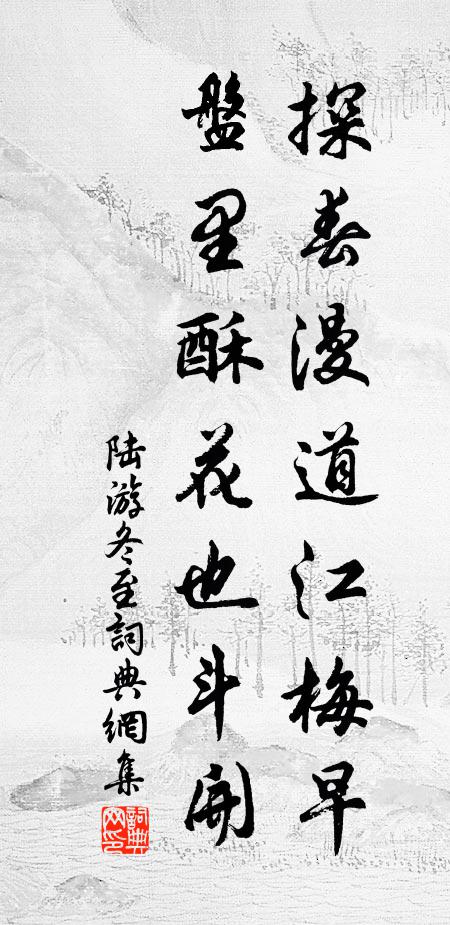 探春漫道江梅早
盤里酥花也斗開
陸游冬至詞典網集
詞典网印